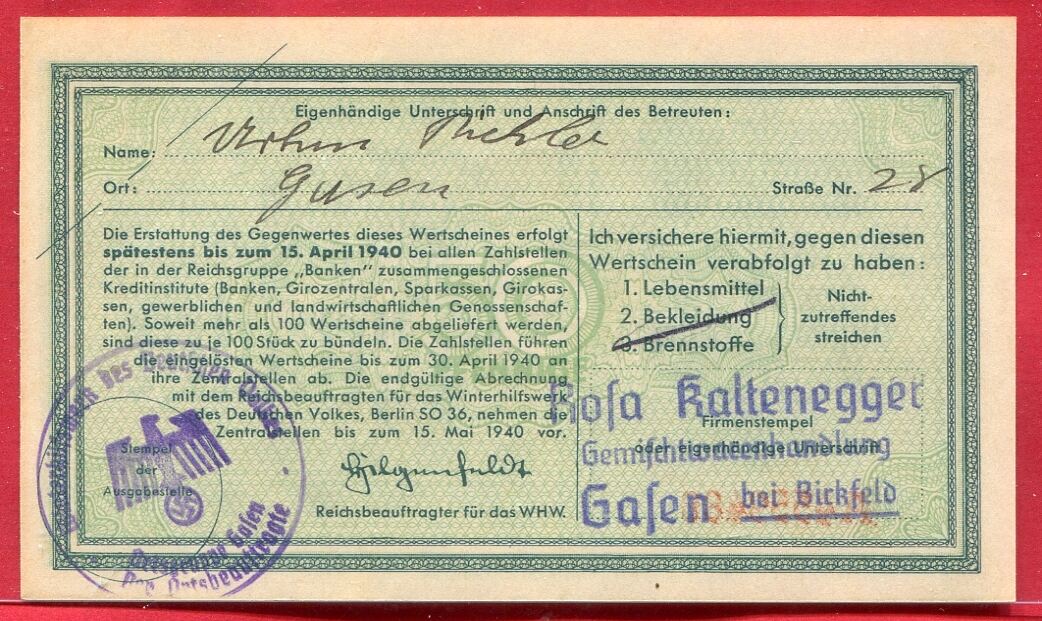 Eigenhändige Unterschrift und Anschrift des Betreuten:
Name:
Ort: Gasen Straße Nr. 28
Die Erstattung des Gegenwertes dieses Wertscheines erfolgt
spätestens bis zum 15. April 1940 bei allen Zahlstellen
der in der Reichsgruppe „Banken" zusammengeschlossenen
Kreditinstitute (Banken, Girozentralen, Sparkassen, Girokas-
sen, gewerblichen und landwirtschaftlichen Genossenschaf-
ten). Soweit mehr als 100 Wertscheine abgeliefert werden,
sind diese zu je 100 Stück zu bündeln. Die Zahlstellen führen
die eingelösten Wertscheine bis zum 30. April 1940 an
ihre Zentralstellen ab. Die endgültige Abrechnung
mit dem Reichsbeauftragten für das Winterhilfswerk
des Deutschen Volkes, Berlin SO 36, nehmen die
Zentralstellen bis zum 15. Mai 1940 vor.
Hilgenfeldt
Reichsbeauftragter für das WHW.
Ich versichere hiermit, gegen diesen
Wertschein verabfolgt zu haben:
1. Lebensmittel
2. Bekleidung
3. Brennstoffe
Nicht-
zutreffendes
streichen
Rosa Kaltenegger
Firmenstempel
oder eigenhändige Unterschrift
Gemischtwarenhandlung
Gasen bei Birkfeld
Stempel
der
Ausgabestelle
des Deutschen
Ortsgruppe Gasen
Der Ortsbeauftragte